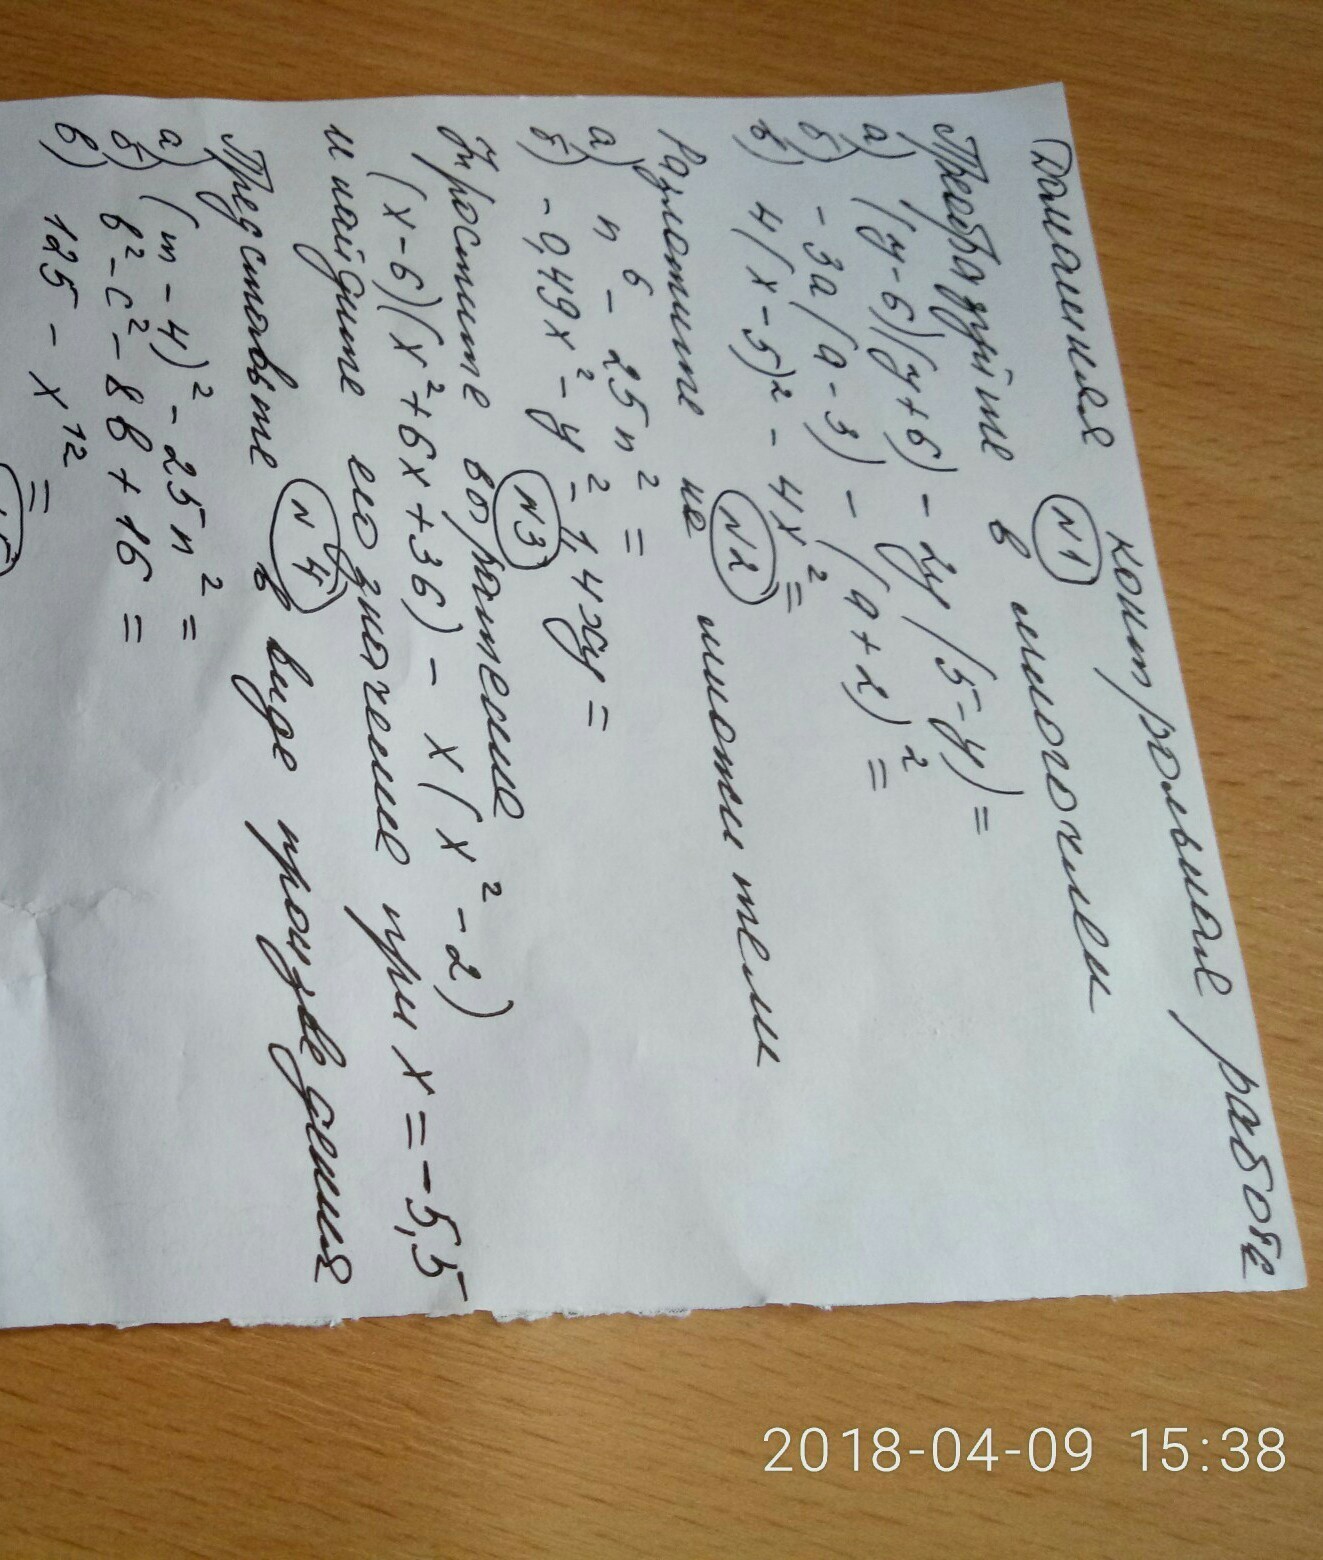 Домашняя контрольная работа
N1
Преобразуйте в многочлен
а) (y-6)(y+6) - 2y(5-y) =
б) -3a(a-3) - (a+2)² =
в) 4(x-5)² - 4x² =
N2
Разложите на множители
а) n⁶ - 25n² =
б) -0,49x² - y² - 1,4xy =
N3
Упростите выражение
(x-6)(x²+6x+36) - x(x²-2)
и найдите его значение при x = -5,5
N4
Представьте в виде произведения
а) (m-4)² - 25n² =
б) b² - c² - 8b + 16 =
в) 125 - x¹² =
2018-04-09 15:38